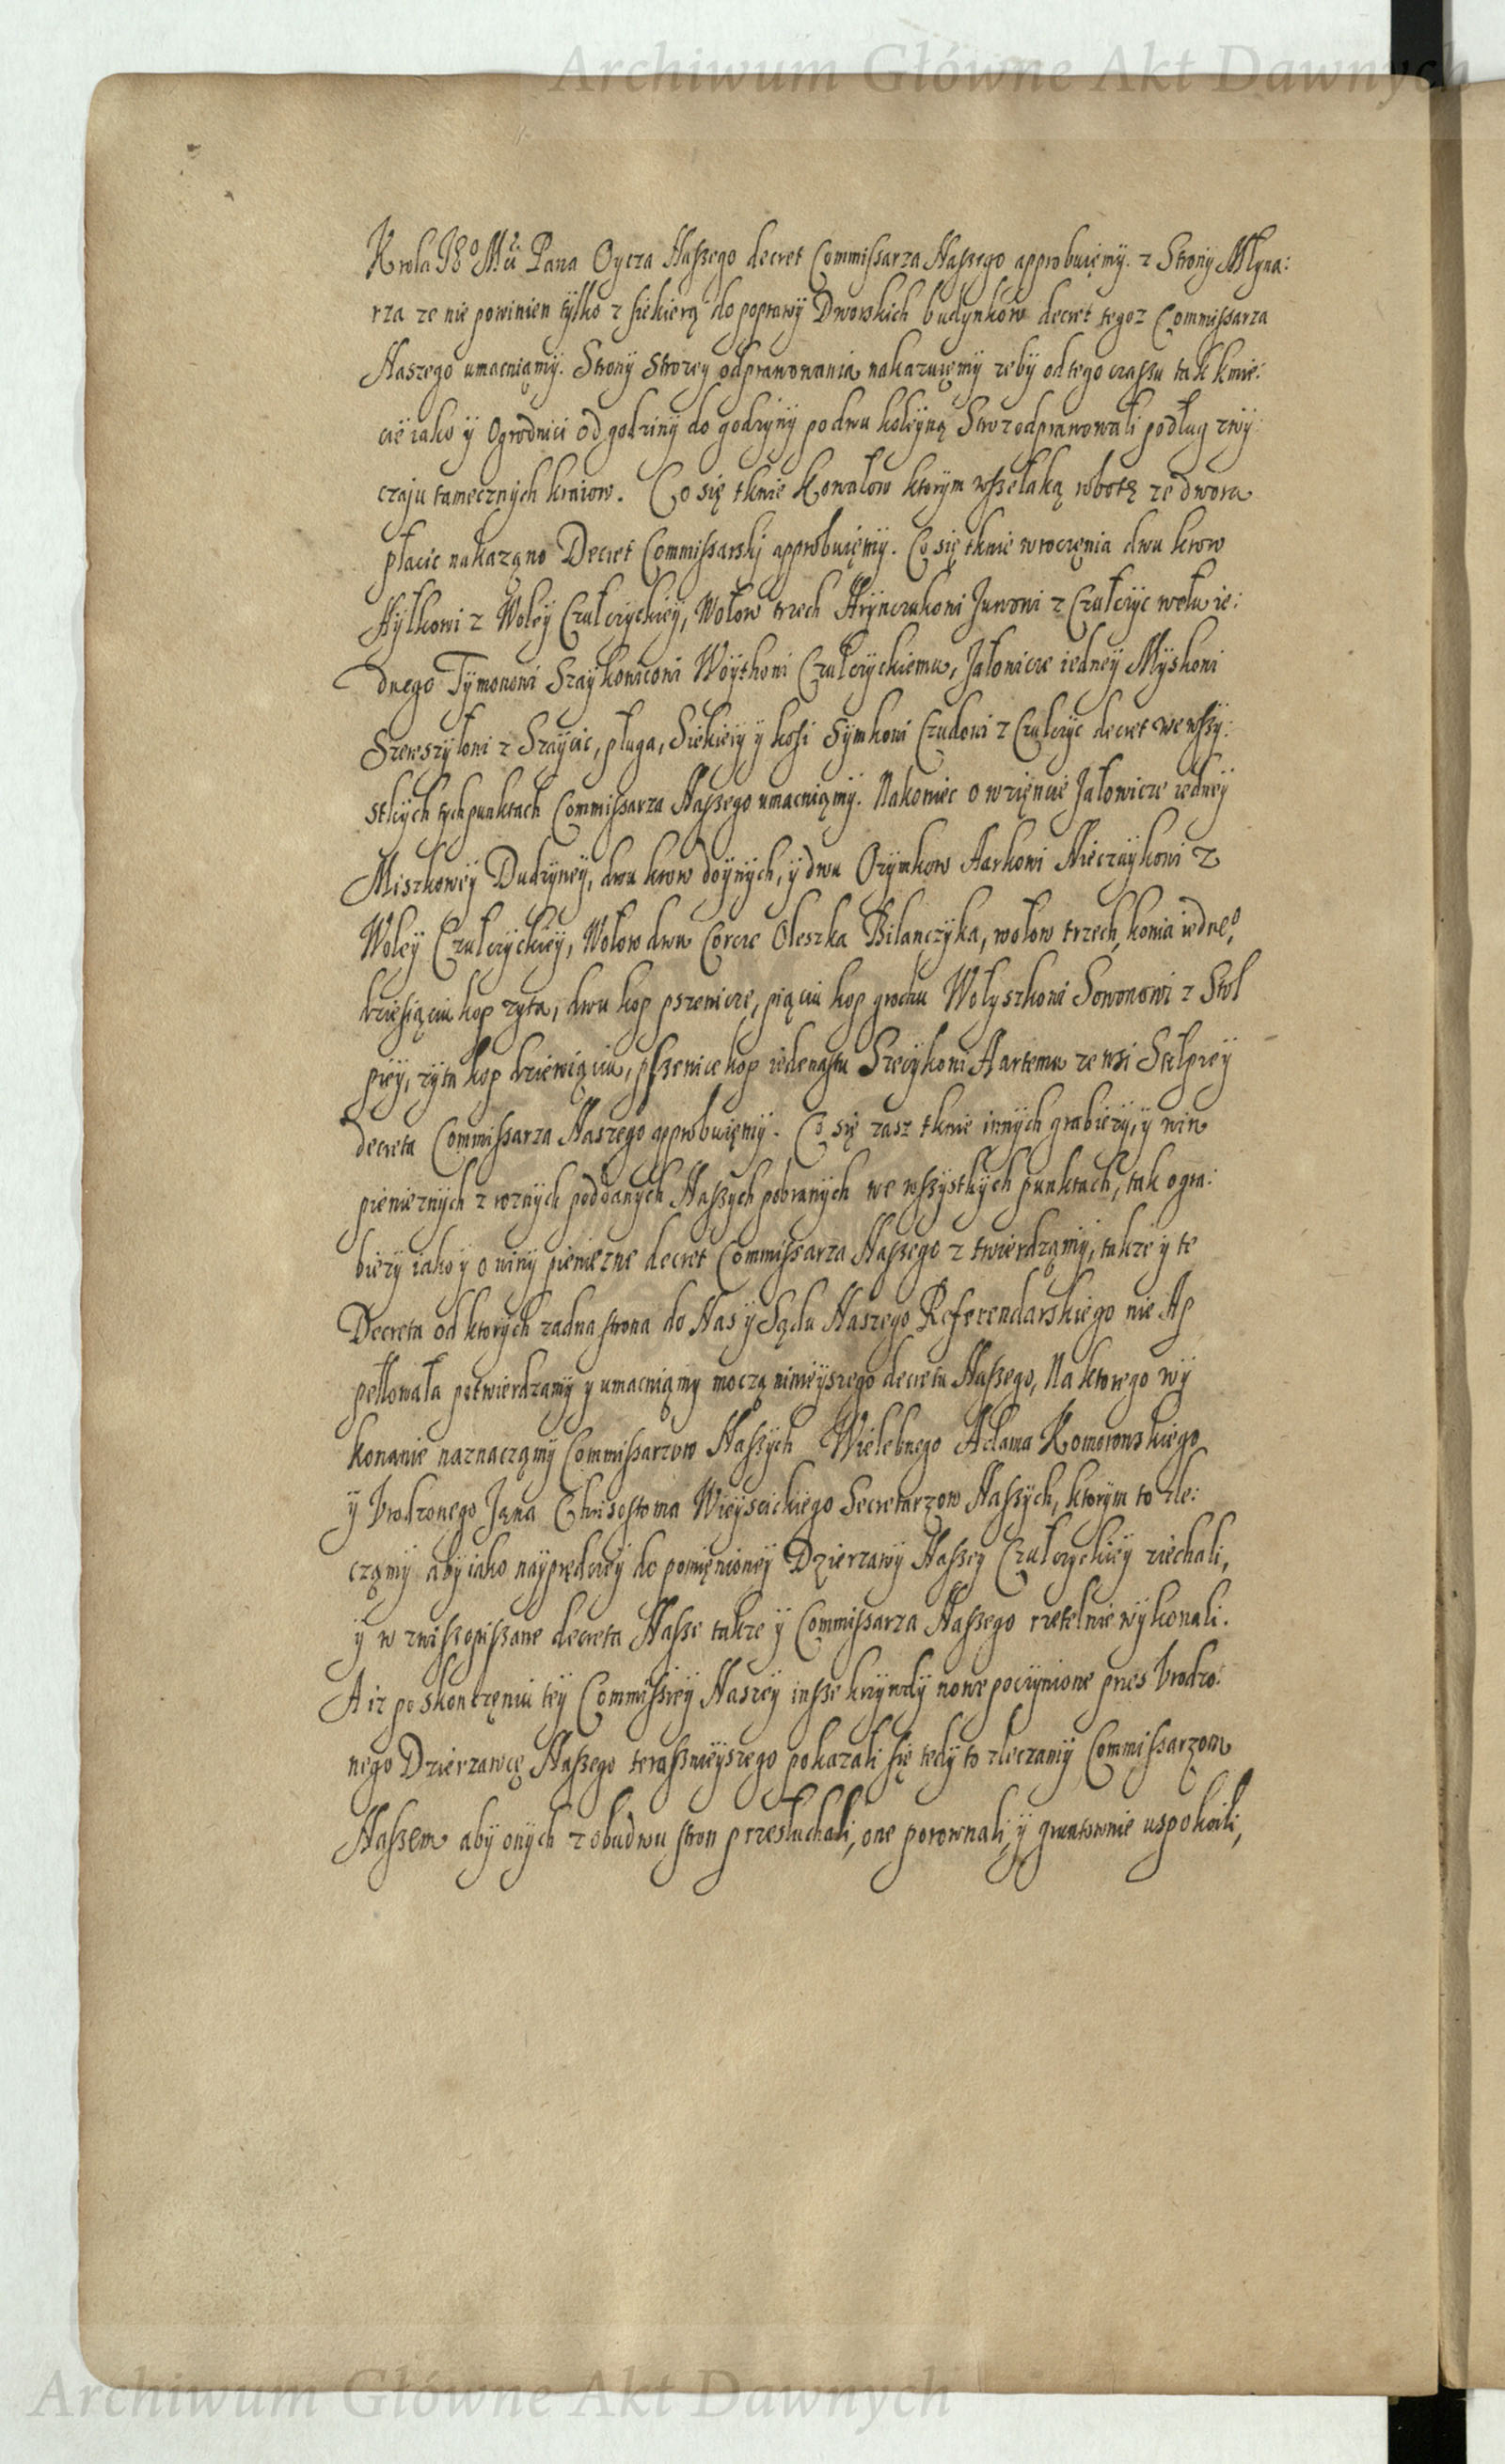 Archiwum Główne Akt Dawnych
Krola J͞o Mći Pana Oycza Naßzego decret Commissarza Naßzego approbuięmÿ. z Stronÿ Mlyna:
rza ze nie powinien tÿlko z siekierą do poprawÿ Dworskich budynkow decret tegoz Commißarza
Naszego umacniamÿ. Stronÿ Strozeÿ odprawowania nakazuięmÿ zebÿ od tego czaßu tak kmie:
cie iako ÿ Ogrodnici od godzinÿ do godzÿnÿ po dwu koleÿną Stroz odprawowali podług zwÿ:
czaju tamecznÿch kraiow. Co się tknie Kowalow ktorÿm wßzelaką robotę ze dwora
płacic nakazano Decret Commißarskj approbuięmÿ. Co się tknie wrocęnia dwu krow
Hÿlkowi z Woleÿ Czułczÿckieÿ, Wołow trzech Hrÿnczukowi Juwowi z Czułczÿc wołu ie:
dnego Tÿmonowi Szaÿkowiconi Woÿthowi Czułczÿckiemu, Jałowicze iedneÿ Mÿskowi
Szewszÿłowi z Szaÿcic, pługa, Siekierÿ ÿ kosi Sÿmkowi Czudowi z Czułczÿc decret we wßzÿ:
stkÿch tych punktach Commißarza Naßzego umacniąmÿ. Nakoniec o wzięncie Jałowicze iedneÿ
Miszkoweÿ Dudzÿneÿ, dwu krow doÿnÿch, ÿ dwu Ozÿmkow Harkowi Nieczaÿkowi z
Woleÿ Czułczÿckieÿ, Wołow dwu Corcze Oleszka Bilanczÿka, wołow trzech, konia iedne͞o,
dziesiąciu kop zyta, dwu kop pszenicze, piąciu kop grochu Wołyszkowi Sowonowi z Stol
pieÿ, zÿta kop dziewiąciu, pßzenice kop iedenastu Szecÿkowi Hartemu ze wsi Stołpieÿ
decreta Commißarza Naszego approbuięmÿ. Co się zasz tknie innÿch grabiezÿ, ÿ win
pienieznÿch z roznÿch poddanÿch Naßzÿch pobranÿch we wßzystkÿch punktach, tak o gra:
biezÿ iako ÿ o winÿ pieniezne decret Commißarza Naßzego z twierdząmÿ, takze ÿ te
Decreta od ktorÿch zadna strona do Nas ÿ Sądu Naszego Referendarskiego nie Ap
pellowała potwierdzamÿ ÿ umacniąmÿ moczą ninieÿszego decretu Naßzego, Na ktorego wÿ
konanie naznacząmÿ Commißarzow Naßzÿch Wielebnego Adama Komorowskiego
ÿ Vrodzonego Jana Chrisostoma Wieÿscickiego Secretarzow Naßzÿch, ktorÿm to zle:
cząmÿ abÿ iako naÿprędzeÿ do pomięnioneÿ Dzierzawÿ Naßzeÿ Czułczÿckieÿ ziechali,
ÿ w zwißzopißzane decreta Naßze takze ÿ Commißarza Naßzego rzetelnie wÿkonali.
A iz po skonczęniu teÿ Commißieÿ Naszeÿ inßze krzÿwdÿ nowe poczÿnione przes Vrodzo:
nego Dzierzawcę Naßzego teraßnieÿszego pokazali się tedÿ to zleczamÿ Commißarzom
Naßzem abÿ onÿch z obudwu stron przesłuchali, one porownali, ÿ gruntownie uspokoili,
Archiwum Główne Akt Dawnych